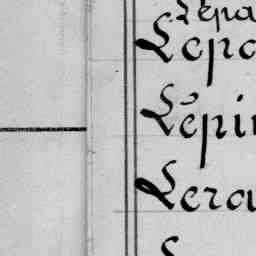 Lepa
Lepa
Lépin
Lera